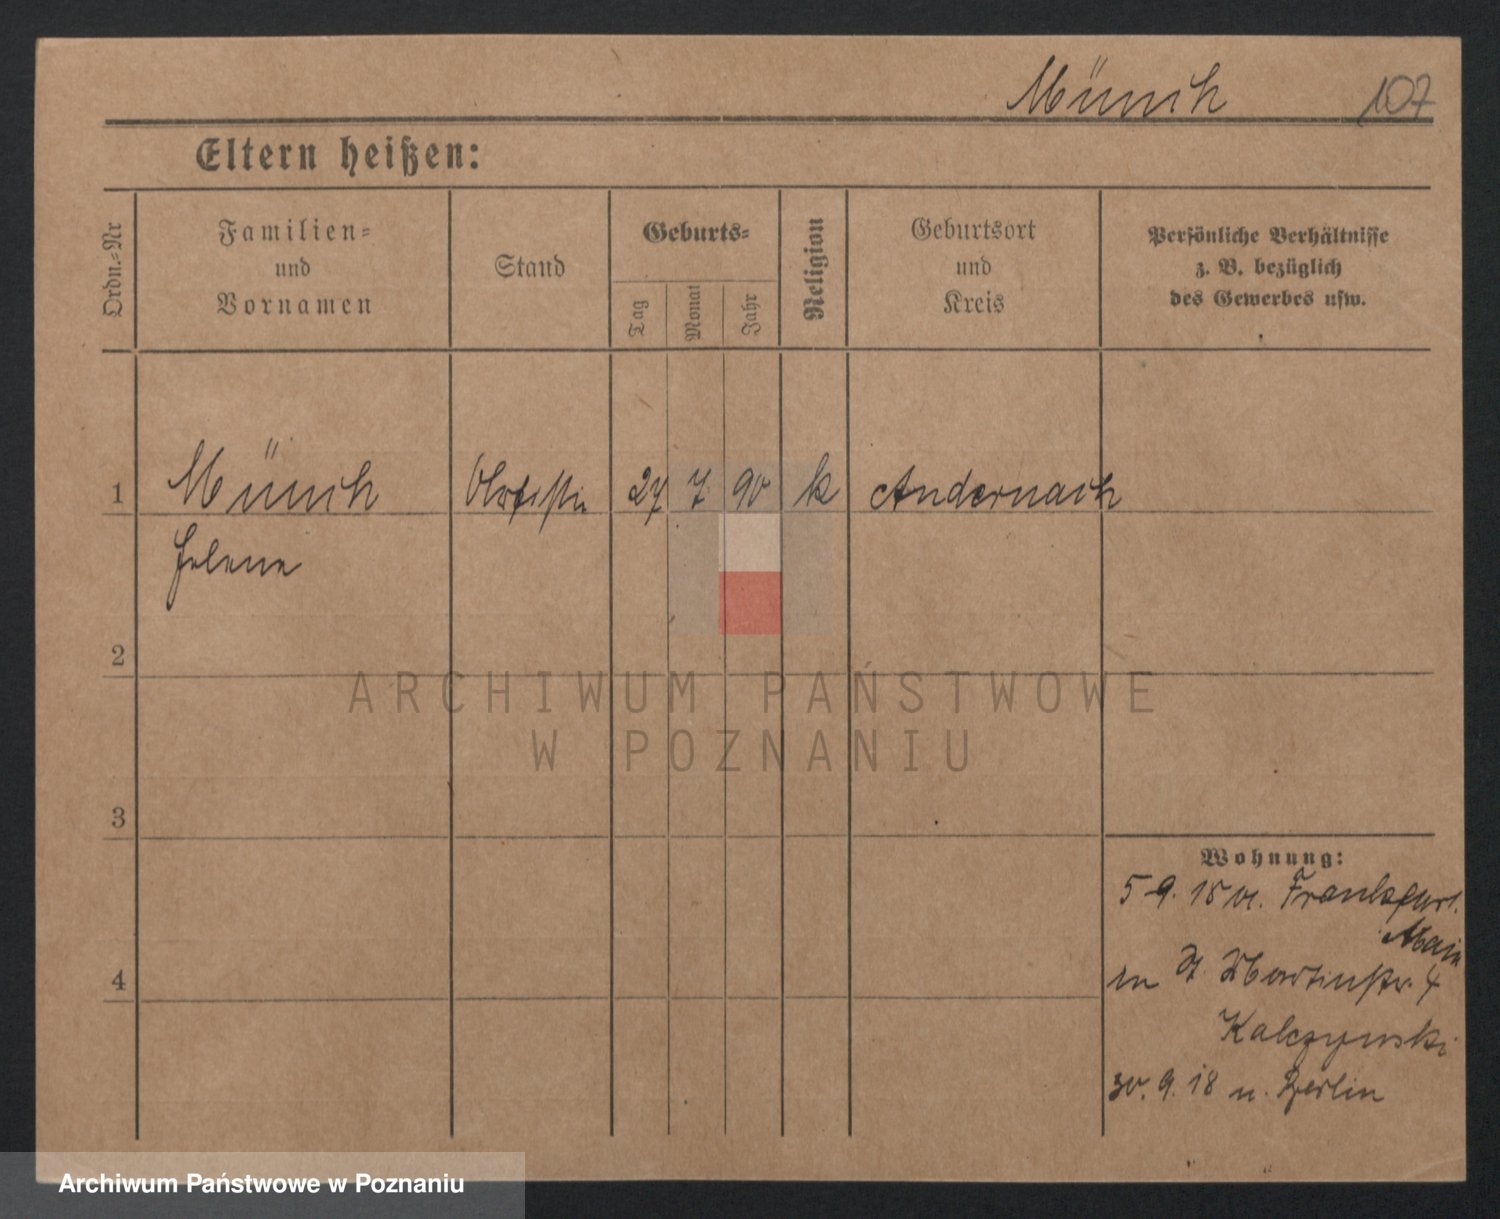 Münch 107
Eltern heißen:
Ordn.-Nr
Familien=
und
Vornamen
Stand
Geburts=
Tag
Monat
Jahr
Religion
Geburtsort
und
Kreis
Persönliche Verhältnisse
z. B. bezüglich
des Gewerbes usw.
1 Münch 27 7 90 k Andernach
Helene
2
ARCHIWUM PAŃSTWOWE
W POZNANIU
3
4
Wohnung:
5 9. 18 v. Frankfurt.
Main
in St Martinstr. 4
Kalczynski
30. 9. 18 n. Berlin
Archiwum Państwowe w Poznaniu